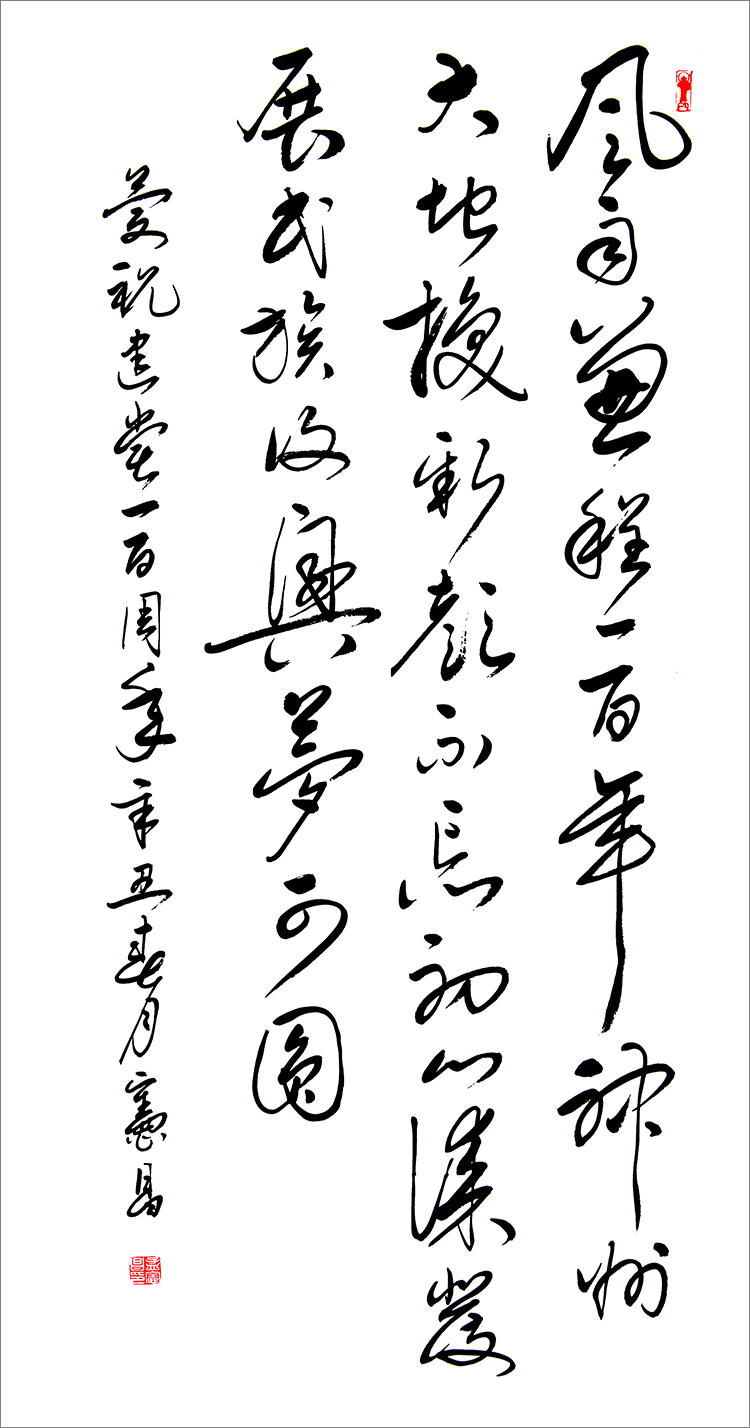 風雨兼程一百年神州
大地換新顏不忘初心謀發
展民族復興夢可圓
慶祝建黨一百周年辛丑春月憲昌